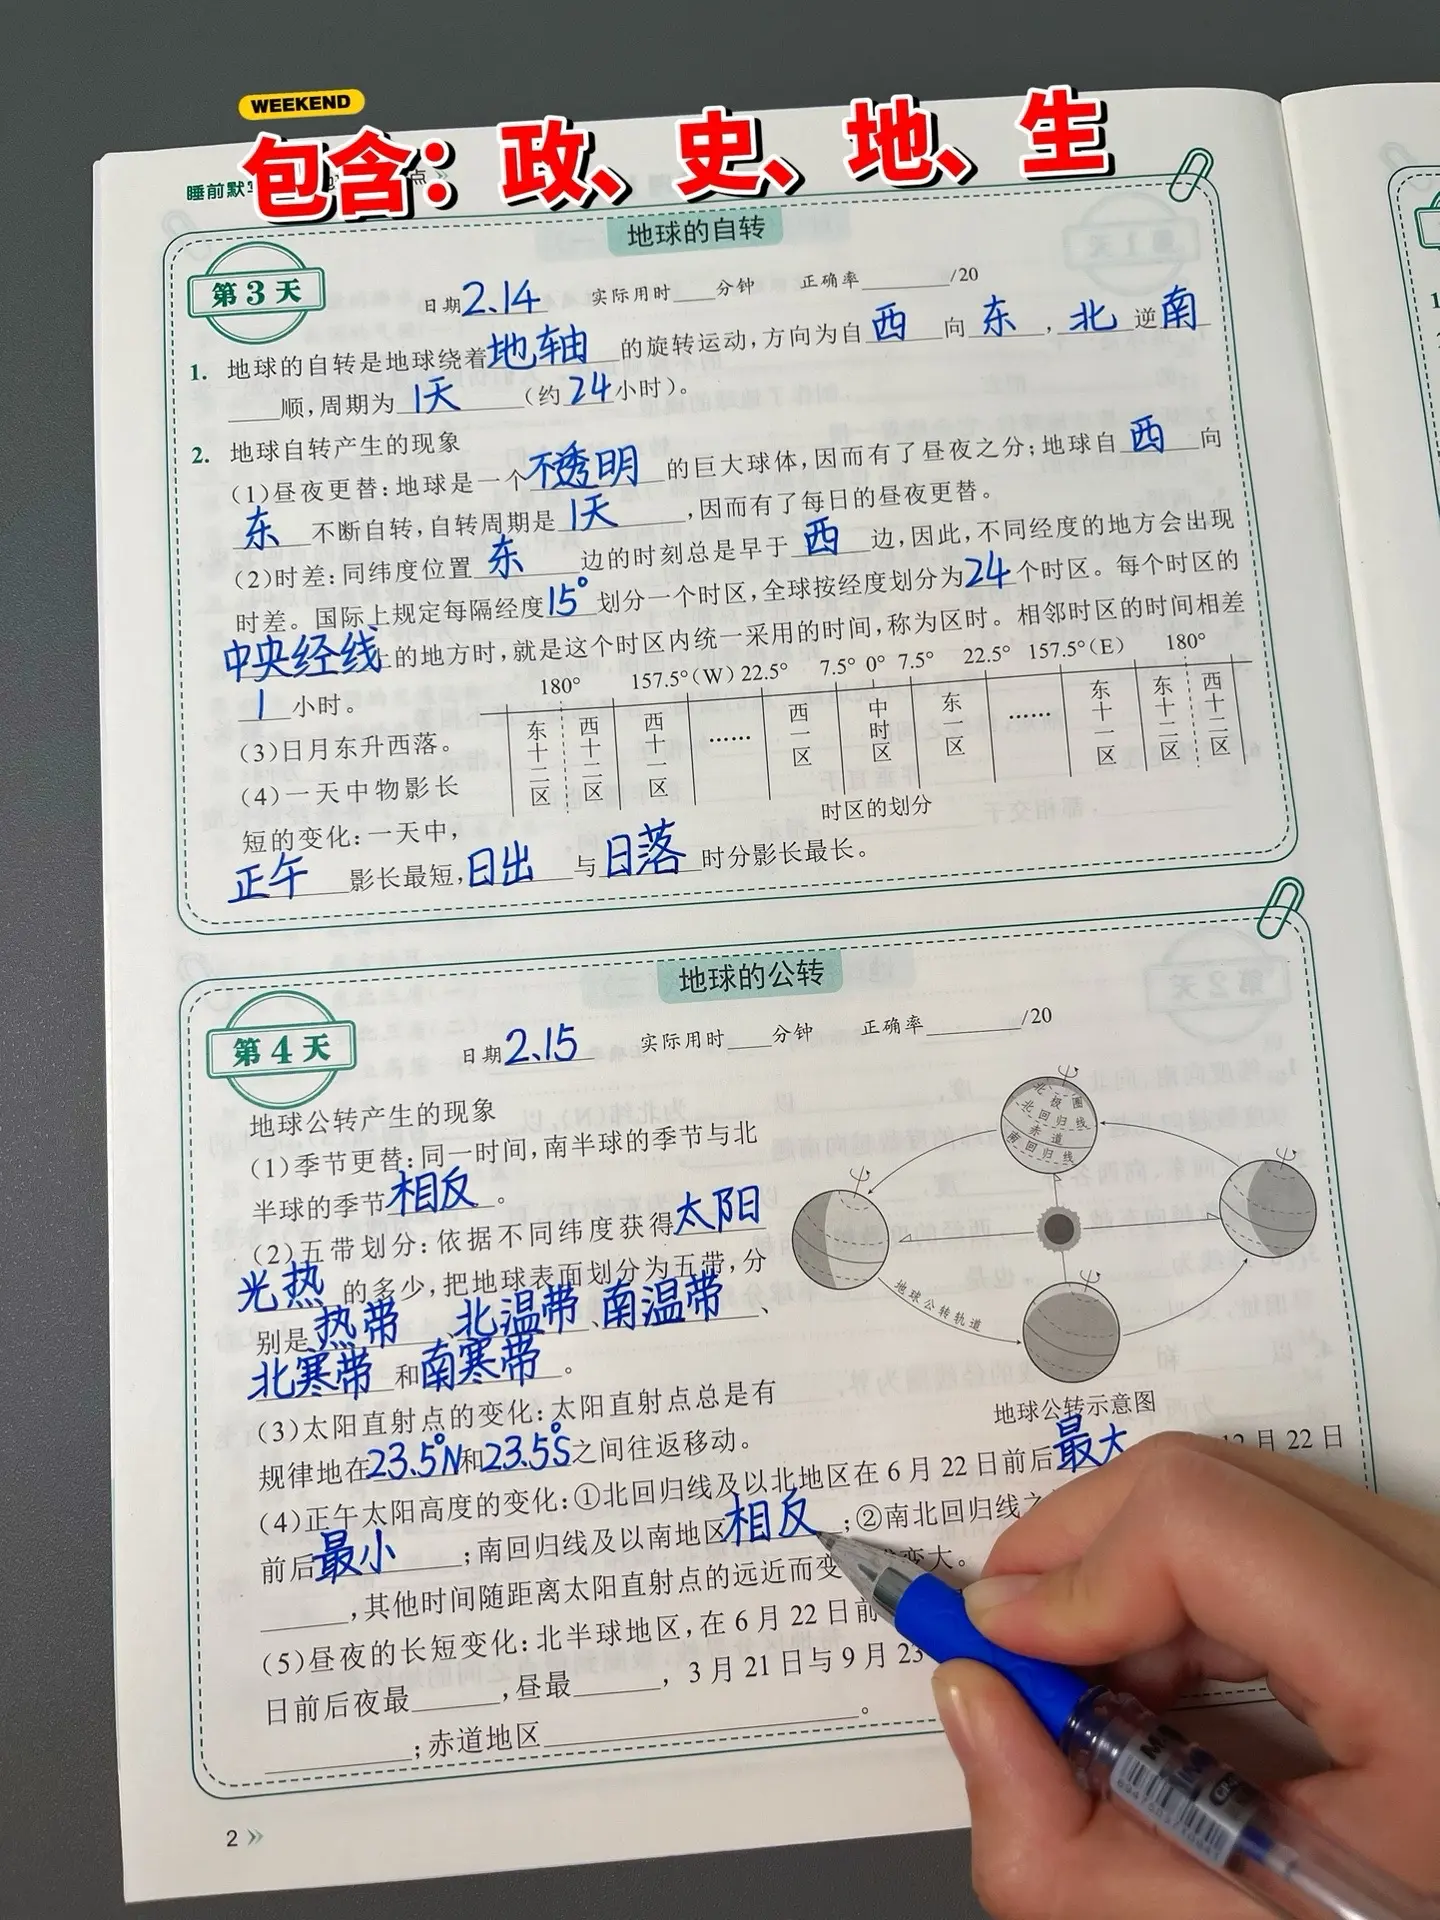 WEEKEND
包含：政、史、地、生
睡前默
点
地球的自转
第3天
日期2.14 实际用时____分钟 正确率____/20
1. 地球的自转是地球绕着地轴的旋转运动，方向为自西向东，北逆南
____顺，周期为1天（约24小时）。
2. 地球自转产生的现象
（1）昼夜更替：地球是一个不透明的巨大球体，因而有了昼夜之分；地球自西向
东不断自转，自转周期是1天，因而有了每日的昼夜更替。
（2）时差：同纬度位置东边的时刻总是早于西边，因此，不同经度的地方会出现
时差。国际上规定每隔经度15°划分一个时区，全球按经度划分为24个时区。每个时区的
中央经线上的地方时，就是这个时区内统一采用的时间，称为区时。相邻时区的时间相差
1小时。
180° 157.5°(W) 22.5° 7.5° 0° 7.5° 22.5° 157.5°(E) 180°
东十二区 西十二区 西十一区 …… 西一区 中时区 东一区 …… 东十一区 东十二区 西十二区
时区的划分
（3）日月东升西落。
（4）一天中物影长
短的变化：一天中，
正午影长最短，日出与日落时分影长最长。
地球的公转
第4天
日期2.15 实际用时____分钟 正确率____/20
地球公转产生的现象
（1）季节更替：同一时间，南半球的季节与北
半球的季节相反。
（2）五带划分：依据不同纬度获得太阳
光热的多少，把地球表面划分为五带，分
别是热带、北温带、南温带、
北寒带和南寒带。
（3）太阳直射点的变化：太阳直射点总是有
规律地在23.5°N和23.5°S之间往返移动。
北极圈
北回归线
赤道
南回归线
地球公转轨道
地球公转示意图
（4）正午太阳高度的变化：①北回归线及以北地区在6月22日前后最大 12月22日
前后最小；南回归线及以南地区相反；②南北回归线之
____，其他时间随距离太阳直射点的远近而变 变大。
（5）昼夜的长短变化：北半球地区，在6月22日前
日前后夜最____，昼最____，3月21日与9月23
____；赤道地区____。
2